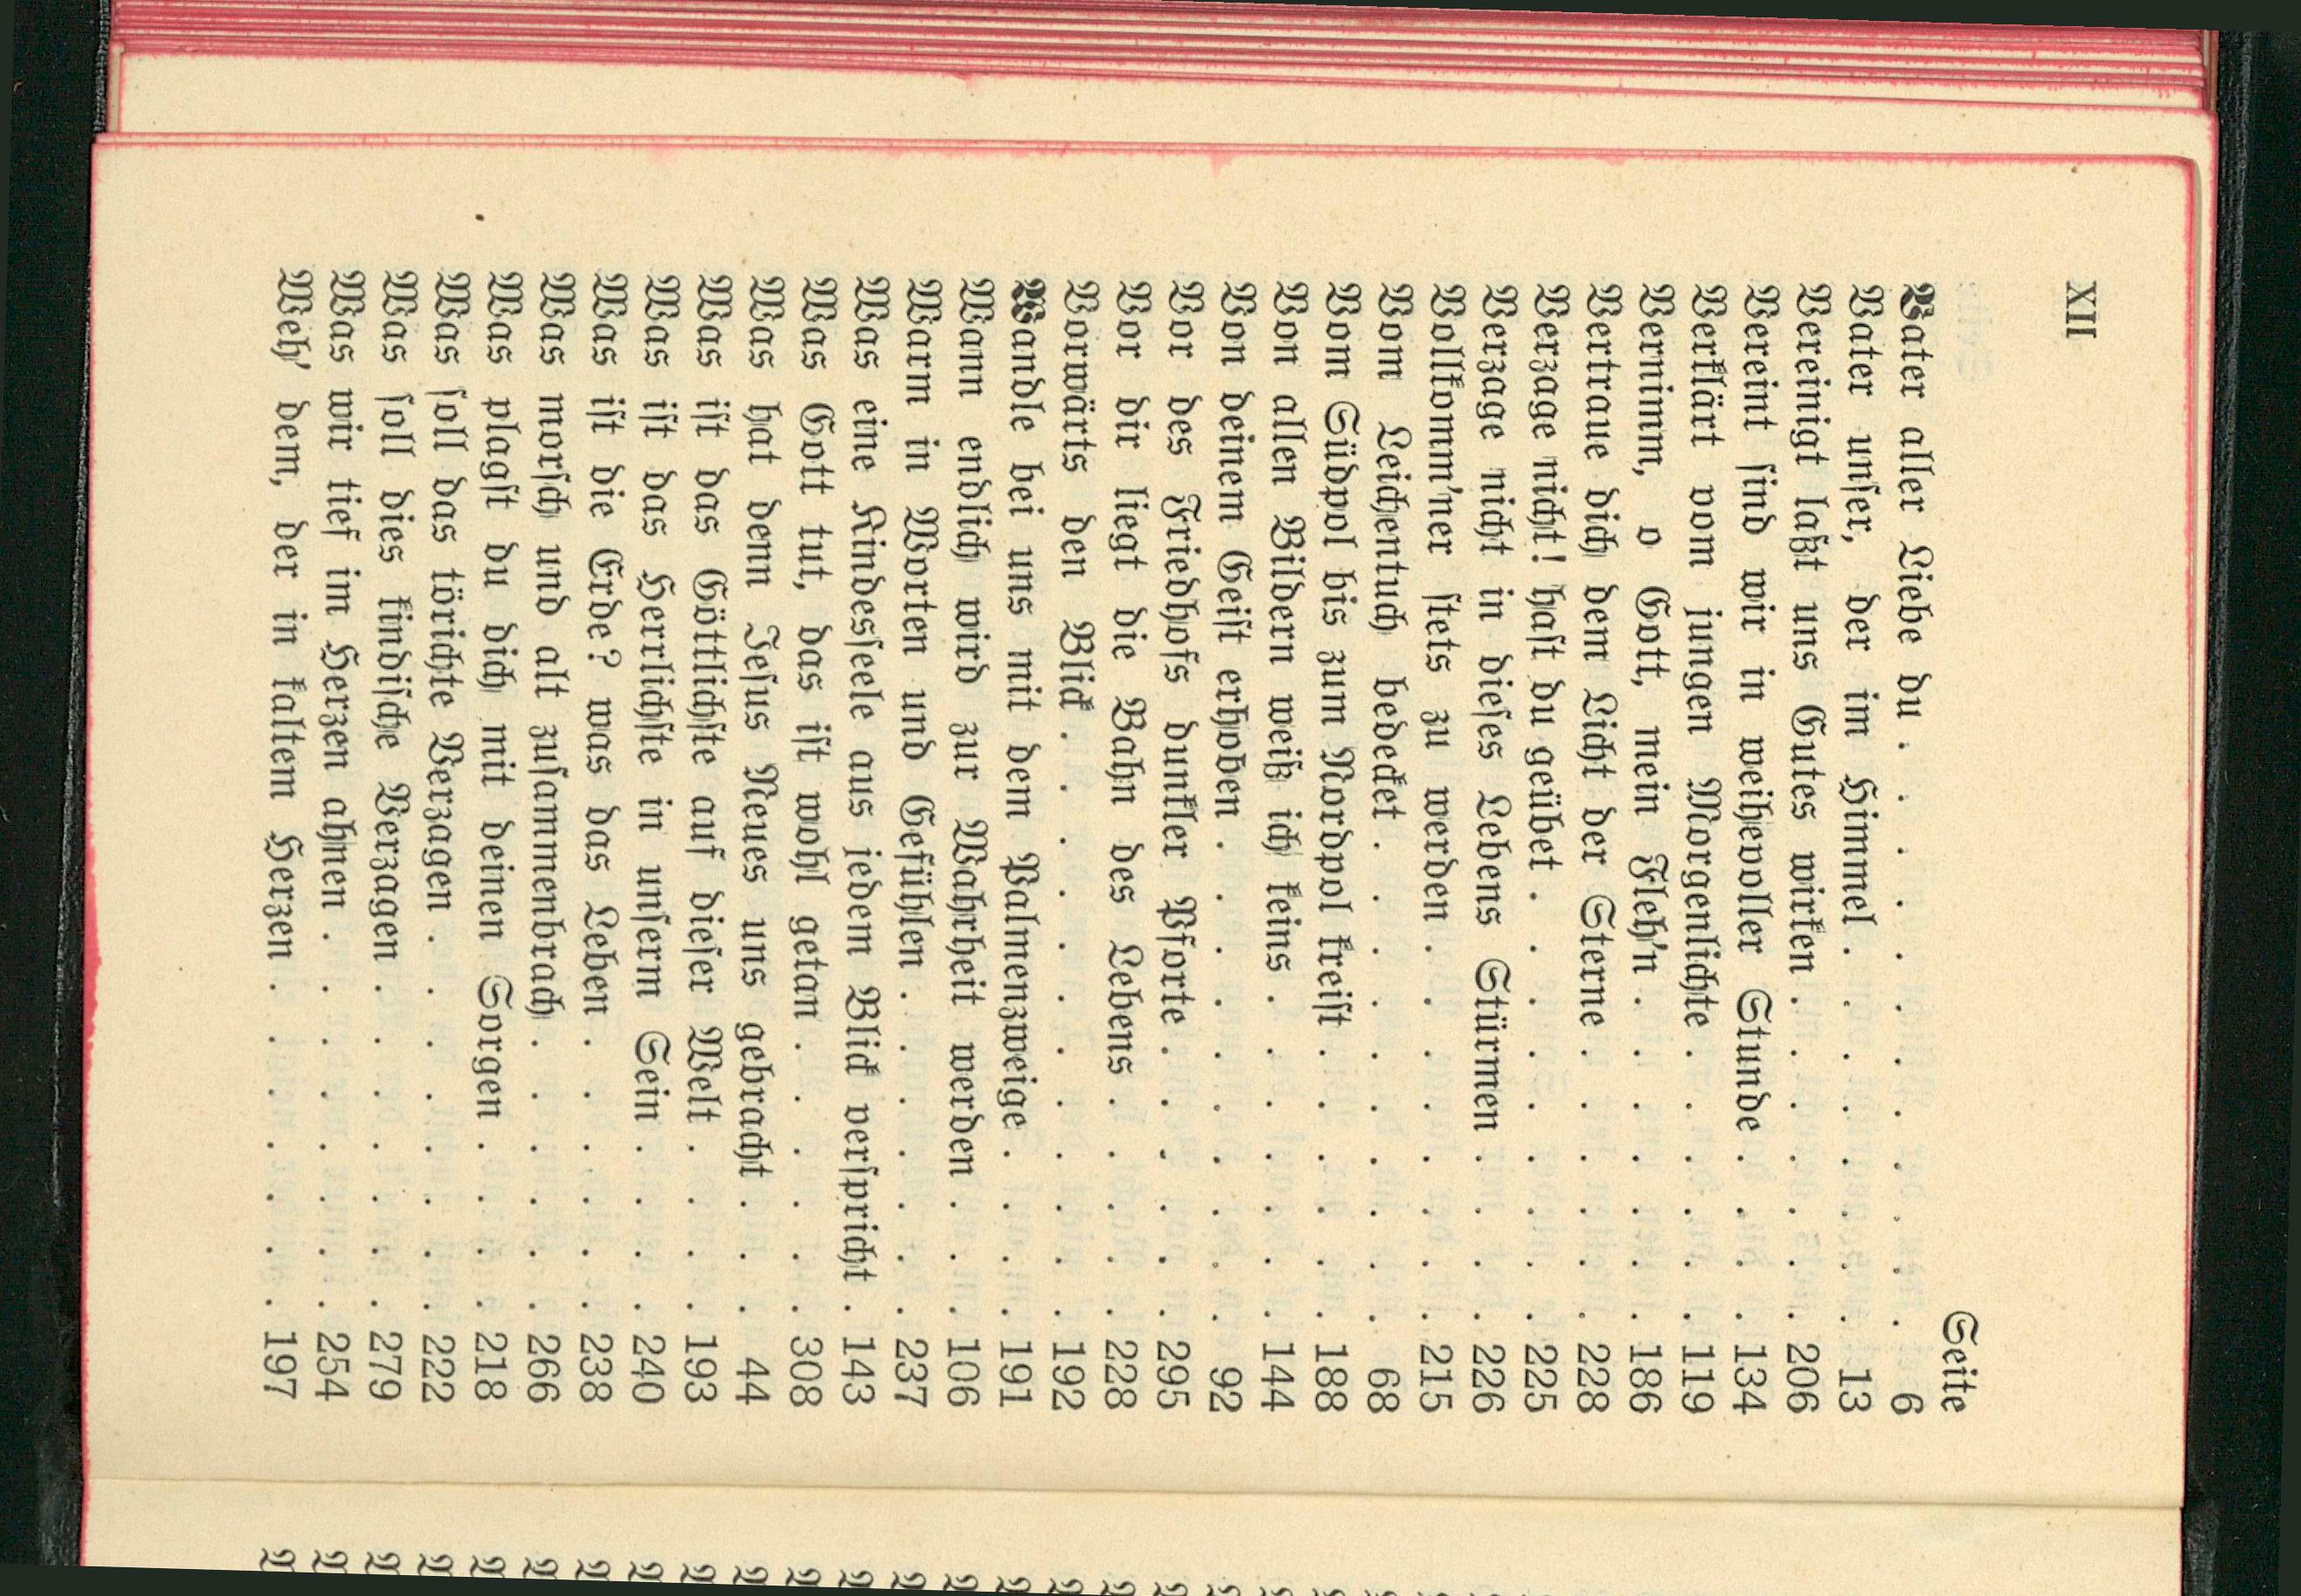 XII
Seite
Vater aller Liebe du . . . . . . . . . . . . 6
Vater unſer, der im Himmel . . . . . . . . 13
Vereinigt laßt uns Gutes wirken . . . . . . . 206
Vereint ſind wir in weihevoller Stunde . . . . 134
Verklärt vom jungen Morgenlichte . . . . . . 119
Vernimm, o Gott, mein Fleh'n . . . . . . . 186
Vertraue dich dem Licht der Sterne . . . . . . 228
Verzage nicht! haſt du geübet . . . . . . . . . 225
Verzage nicht in dieſes Lebens Stürmen . . . . 226
Vollkomm'ner ſtets zu werden . . . . . . . . 215
Vom Leichentuch bedecket . . . . . . . . . . 68
Vom Südpol bis zum Nordpol kreiſt . . . . . . 188
Von allen Bildern weiß ich keins . . . . . . . 144
Von deinem Geiſt erhoben . . . . . . . . . . 92
Vor des Friedhofs dunkler Pforte . . . . . . 295
Vor dir liegt die Bahn des Lebens . . . . . 228
Vorwärts den Blick . . . . . . . . . . . . 192
Wandle bei uns mit dem Palmenzweige . . . . 191
Wann endlich wird zur Wahrheit werden . . . 106
Warm in Worten und Gefühlen . . . . . . . 237
Was eine Kindesſeele aus jedem Blick verſpricht . 143
Was Gott tut, das iſt wohl getan . . . . . . 308
Was hat denn Jeſus Neues uns gebracht . . . 44
Was iſt das Göttlichſte auf dieſer Welt . . . . 193
Was iſt das Herrlichſte in unſerm Sein . . . . 240
Was iſt die Erde? was das Leben . . . . . . 238
Was morſch und alt zuſammenbrach . . . . . . 266
Was plagſt du dich mit deinen Sorgen . . . . 218
Was ſoll das törichte Verzagen . . . . . . . . 222
Was ſoll dies kindiſche Verzagen . . . . . . . 279
Was wir tief im Herzen ahnen . . . . . . . . 254
Weh' dem, der in kaltem Herzen . . . . . . . 197